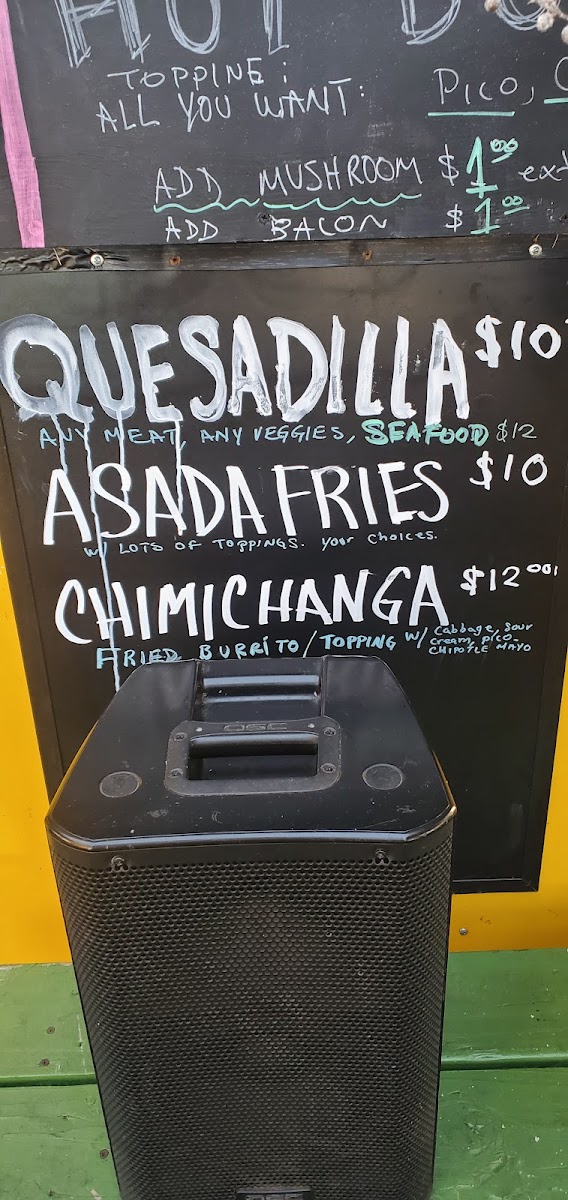 HOT DO
TOPPINE:
ALL YOU WANT: PICO, C
ADD MUSHROOM $1.00 ext
ADD BACON $1.00
QUESADILLA $10
ANY MEAT, ANY VEGGIES, SEAFOOD $12
ASADA FRIES $10
W/ LOTS OF TOPPINGS. Your choices.
CHIMICHANGA $12.00
FRIED BURRITO/TOPPING W/ Cabbage, Sour
cream, pico-
CHIPOTLE MAYO
QSC